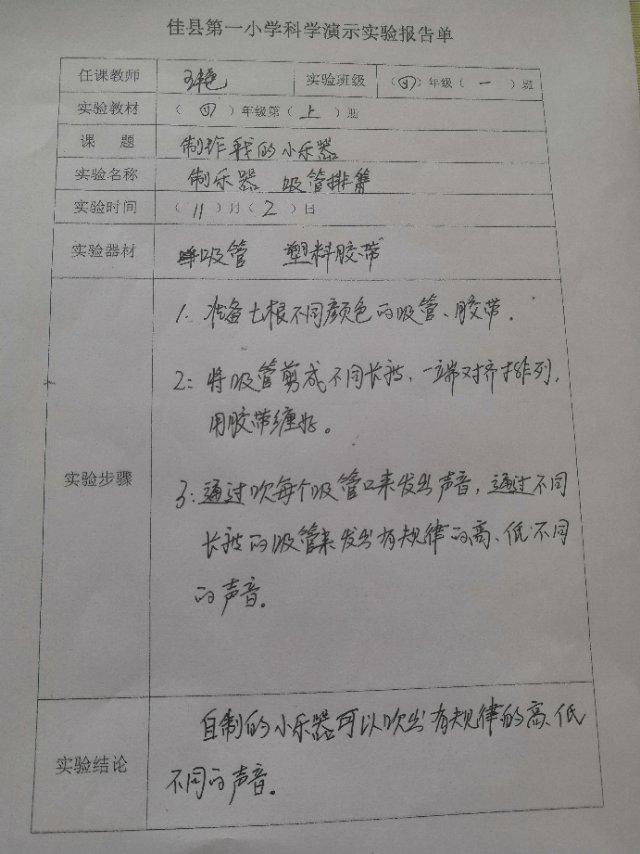 佳县第一小学科学演示实验报告单
任课教师 王艳 实验班级 （四）年级（一）班
实验教材 （四）年级第（上）册
课 题 制作我的小乐器
实验名称 制乐器 吸管排箫
实验时间 （11）月（2）日
实验器材 吸管 塑料胶带
实验步骤
1. 准备七根不同颜色的吸管、胶带.
2: 将吸管剪成不同长短、一端对齐排列,
用胶带缠好。
3: 通过吹每个吸管口来发出声音, 通过不同
长短的吸管来发出有规律的高、低不同
的声音。
实验结论
自制的小乐器可以吹出有规律的高、低
不同的声音。